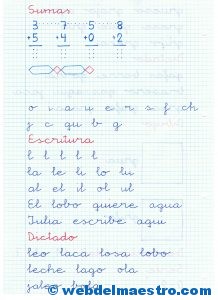 Sumas
3 7 5 8
+5 +4 +0 +2
o i a u e r s f ch
j c qu b g
Escritura
l l l l l
la le li lo lu
al el il ol ul
El lobo quiere agua
Julia escribe aquí
Dictado
leo laca losa lobo
leche lago ola
jaleo bola
© webdelmaestro.com